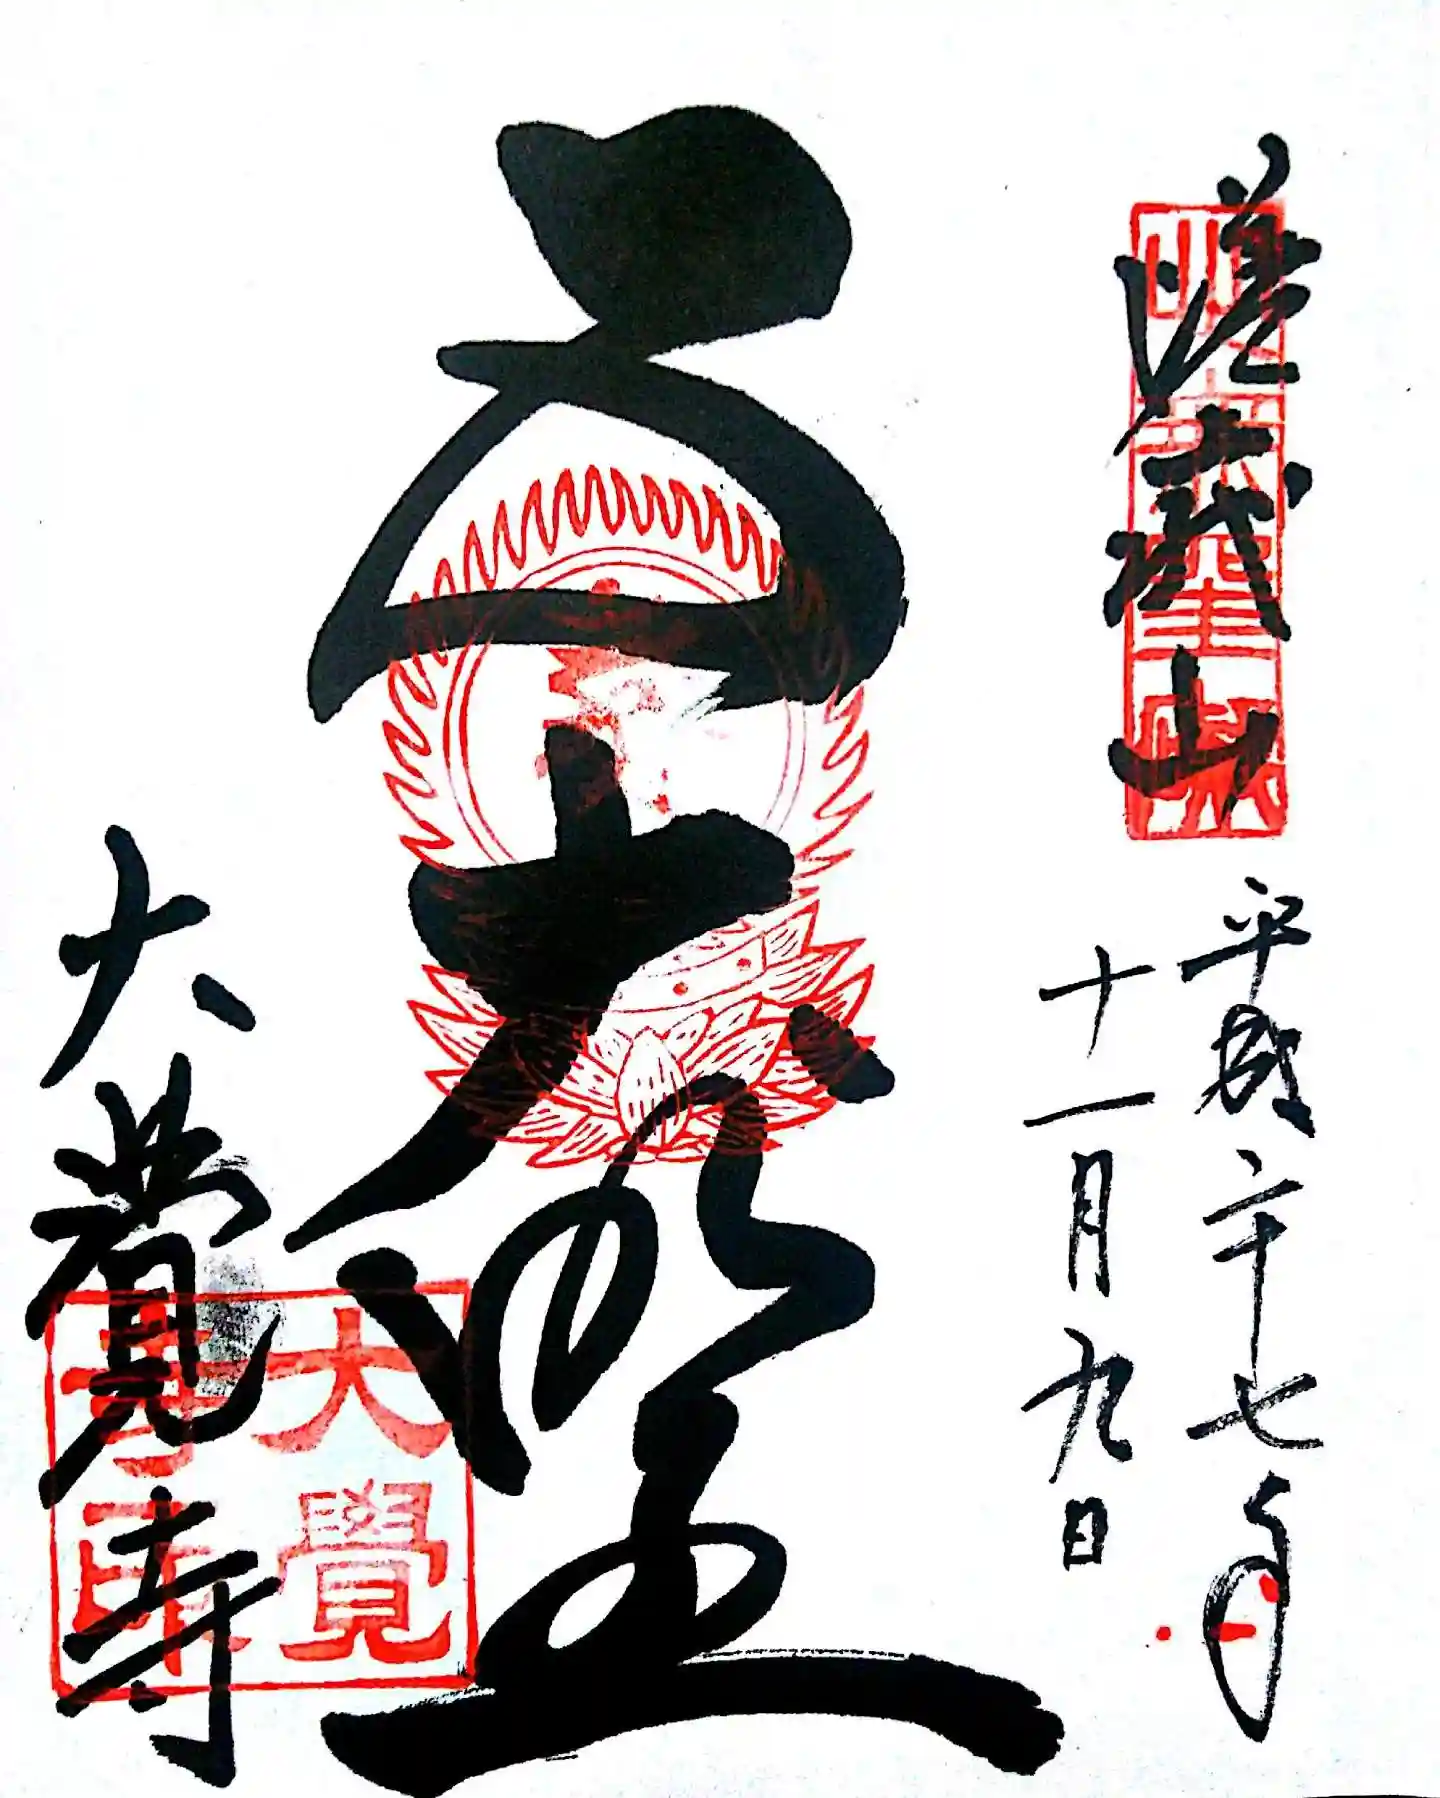 嵯峨山
平成二十七年
十一月九日
五大明王
大覚寺
大覺
寺印